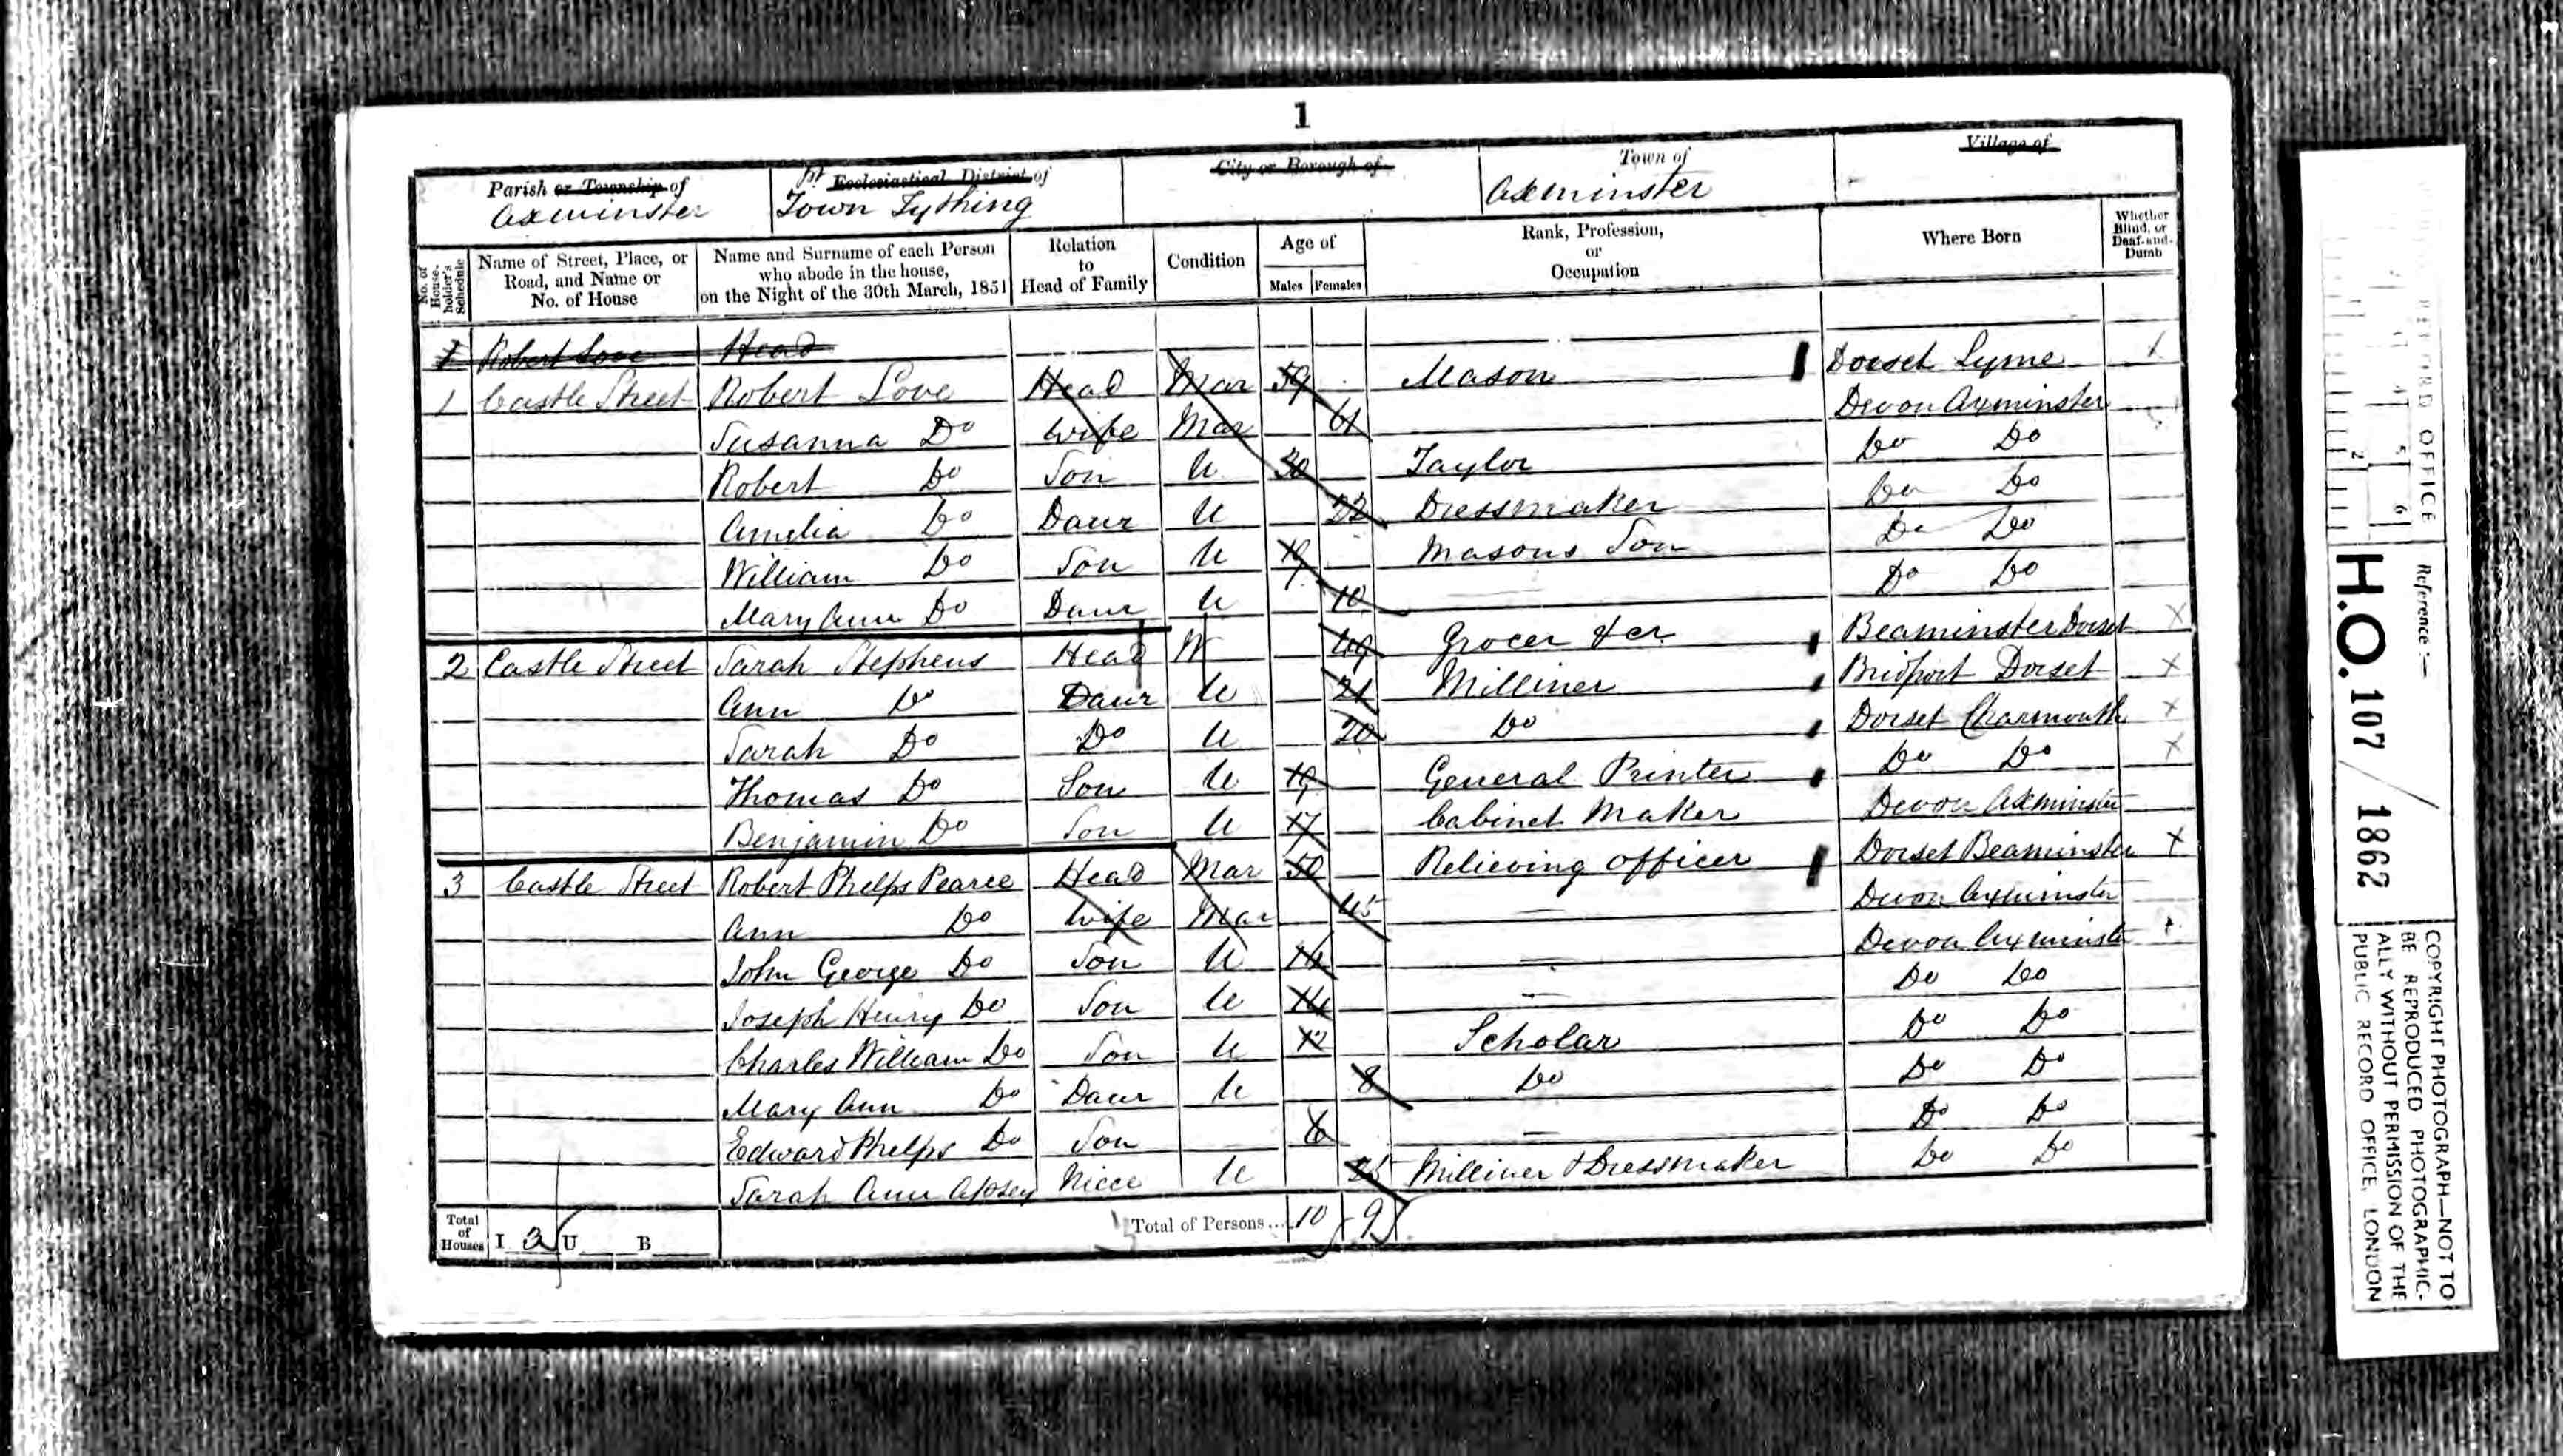 1
Parish or Township of
Axminster
1st Ecclesiastical District of
Town Tything
City or Borough of
Town of
Axminster
Village of
No. of House-holder's Schedule
Name of Street, Place, or Road, and Name or No. of House
Name and Surname of each Person who abode in the house, on the Night of the 30th March, 1851
Relation to Head of Family
Condition
Age of
Males Females
Rank, Profession, or Occupation
Where Born
Whether Blind, or Deaf-and-Dumb
1 Robert Love Head
1 Castle Street Robert Love Head Mar 59 Mason Dorset Lyme
Susanna Do Wife Mar 61 Devon Axminster
Robert Do Son U 30 Taylor Do Do
Amelia Do Daur U 22 Dressmaker Do Do
William Do Son U 19 Masons Son Do Do
Mary Ann Do Daur U 10 Do Do
2 Castle Street Sarah Stephens Head W 49 Grocer &cr Beaminster Dorset
Ann Do Daur U 21 Milliner Bridport Dorset
Sarah Do Do U 20 Do Dorset Charmouth
Thomas Do Son U 19 General Printer Do Do
Benjamin Do Son U 17 Cabinet Maker Devon Axminster
3 Castle Street Robert Phelps Pearce Head Mar 50 Relieving Officer Dorset Beaminster
Ann Do Wife Mar 45 Devon Axminster
John George Do Son U 14 Devon Axminster
Joseph Henry Do Son U 14 Do Do
Charles William Do Son U 12 Scholar Do Do
Mary Ann Do Daur U 8 Do Do Do
Edward Phelps Do Son 6 Do Do
Sarah Ann Apsey Niece U 25 Milliner & Dressmaker Do Do
Total of Houses I 3 U B Total of Persons... 10 9
RECORD OFFICE
2 4 5 6
Reference :—
H.O. 107 / 1862
COPYRIGHT PHOTOGRAPH—NOT TO
BE REPRODUCED PHOTOGRAPHIC-
ALLY WITHOUT PERMISSION OF THE
PUBLIC RECORD OFFICE, LONDON